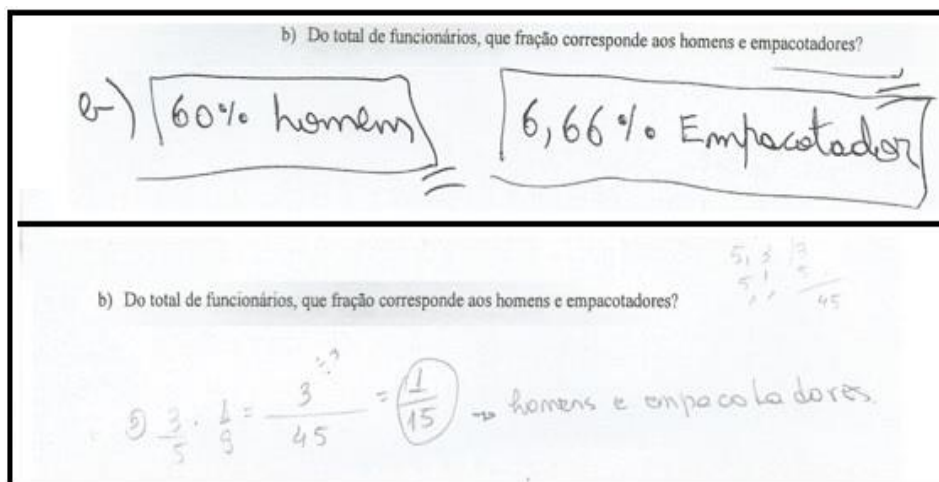 b) Do total de funcionários, que fração corresponde aos homens e empacotadores?
b) 60% homem 6,66% Empacotador
5, 3 3
5, 1, 5
45
b) Do total de funcionários, que fração corresponde aos homens e empacotadores?
3/5 . 1/9 = 3/45 = 1/15 → homens e empacotadores.